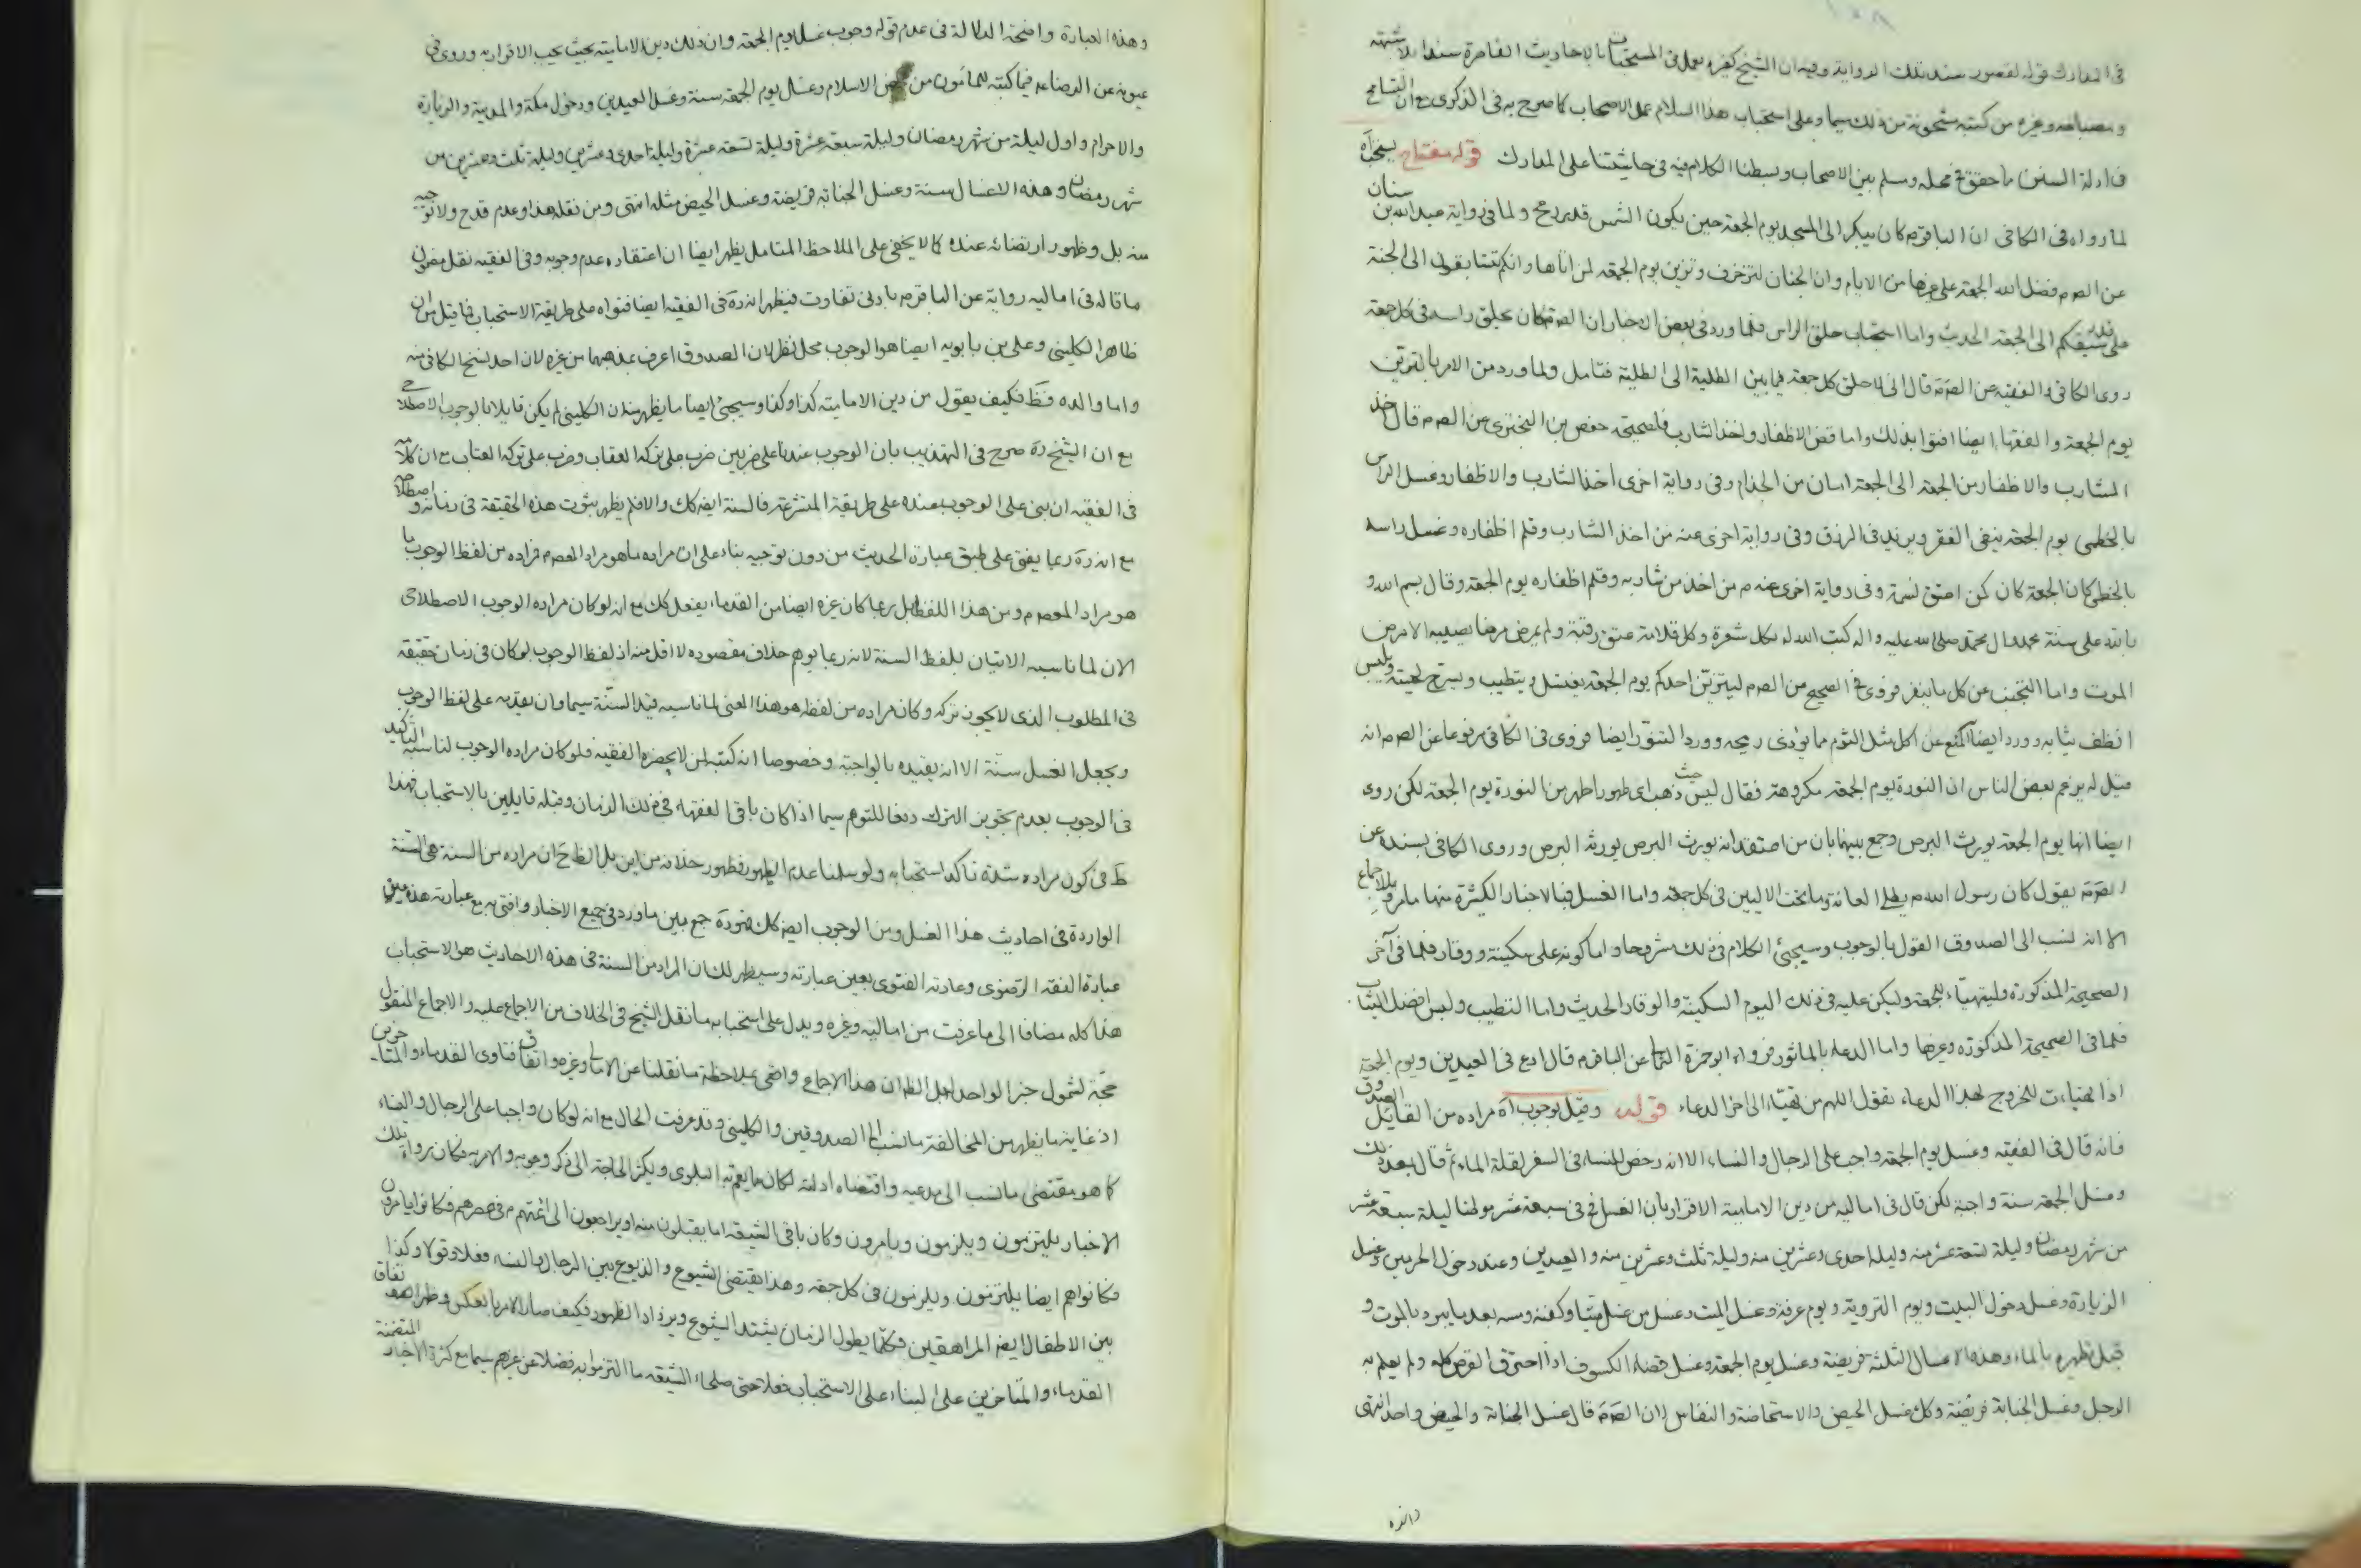 في المدارك قوله لقصور سند تلك الرواية وفيه ان الشيخ كغيره يعمل في المستحبات بالاحاديث القاصرة سندا
ومصباحه وغيره من كتبه مشحونة من ذلك سيما وعلى استحباب هذا السلام عمل الاصحاب كما صرح به في الذكرى مع ان التسامح
في ادلة السنن ما حقق في محله وسلم بين الاصحاب وبسطنا الكلام فيه في حاشيتنا على المدارك قوله مفتاح يستحب اه
لما رواه في الكافي ان الباقر ع كان يبكر الى المسجد يوم الجمعة حين يكون الشمس قدر رمح ولما في رواية عبد الله بن سنان
عن الص ع فضل الله الجمعة على غيرها من الايام وان الجنان لتزخرف وتزين يوم الجمعة لمن اتاها وانكم تتسابقون الى الجنة
على قدر سبقكم الى الجمعة الحديث واما استحباب حلق الراس فلما ورد في بعض الاخبار ان الص ع كان يحلق راسه في كل جمعة
روى الكافي والفقيه عن الص ع قال اني لاحلق كل جمعة فيما بين الطلية الى الطلية فتامل ولما ورد من الامر بالتزين
يوم الجمعة والفقهاء ايضا افتوا بذلك واما قص الاظفار واخذ الشارب فلصحيحة حفص بن البختري عن الص ع قال خذ
الشارب والاظفار من الجمعة الى الجمعة امان من الجذام وفي رواية اخرى اخذ الشارب والاظفار وغسل الراس
بالخطمي يوم الجمعة ينفي الفقر ويزيد في الرزق وفي رواية اخرى عنه من اخذ الشارب وقلم اظفاره وغسل راسه
بالخطمي كان الجمعة كان كمن اعتق نسمة وفي رواية اخرى عنه ع من اخذ من شاربه وقلم اظفاره يوم الجمعة وقال بسم الله و
بالله على سنة محمد وال محمد صلى الله عليه واله كتب الله له بكل شعرة وكل قلامة عتق رقبة ولم يمرض مرضا يصيبه الا مرض
الموت واما التجنب عن كل ما ينفر فروي في الصحيح عن الص ع ليتزين احدكم يوم الجمعة يغتسل ويتطيب ويسرح لحيته ويلبس
انظف ثيابه وورد ايضا المنع عن اكل مثل الثوم مما يؤذي ريحه وورد التنور ايضا فروى في الكافي مرفوعا عن الص ع انه
قيل له يزعم بعض الناس ان النورة يوم الجمعة مكروهة فقال ليس حيث ذهب اي طهور اطهر من النورة يوم الجمعة لكن روى
ايضا انها يوم الجمعة يورث البرص وجمع بينهما بان من اعتقد انه يورث البرص يورثه البرص وروى الكافي بسنده عن
الص ع يقول كان رسول الله ص يطلي العانة وما تحت الاليين في كل جمعة واما الغسل فبالاخبار الكثيرة منها ما مر وبالاجماع
الا انه نسب الى الصدوق القول بالوجوب وسيجئ الكلام في ذلك مشروحا واما كونه على سكينة ووقار فلما في آخر
الصحيحة المذكورة وليتهيأ للجمعة وليكن عليه في ذلك اليوم السكينة والوقار الحديث واما التطيب ولبس افضل الثياب
فلما في الصحيحة المذكورة وغيرها واما الدعاء بالماثور فرواه ابو حمزة الثمالي عن الباقر ع قال ادع في العيدين ويوم الجمعة
اذا تهيأت للخروج بهذا الدعاء يقول اللهم من تهيا الى اخر الدعاء قوله وقيل بوجوب اه مراده من القائل الصدوق
فانه قال في الفقيه وغسل يوم الجمعة واجب على الرجال والنساء الا انه رخص للنساء في السفر لقلة الماء ثم قال بعد ذلك
وغسل الجمعة سنة واجبة لكن قال في اماليه من دين الامامية الاقرار بان الغسل في سبعة عشر موطنا ليلة سبعة عشر
من شهر رمضان وليلة تسعة عشر منه وليلة احدى وعشرين منه وليلة ثلث وعشرين منه والعيدين وعند دخول الحرمين وغسل
الزيارة وغسل دخول البيت ويوم التروية ويوم عرفة وغسل الميت وغسل من غسل ميتا وكفنه ومسه بعد ما يبرد بالموت و
قبل تطهيره بالماء وهذه الاغسال الثلثة فريضة وغسل يوم الجمعة وغسل قضاء الكسوف اذا احترق القرص كله ولم يعلم به
الرجل وغسل الجنابة فريضة وكذا غسل الحيض والاستحاضة والنفاس لان الص ع قال غسل الجنابة والحيض واحد انتهى
وهذه العبارة واضحة الدلالة في عدم قوله وجوب غسل يوم الجمعة وان ذلك دين الامامية بحيث يجب الاقرار به وروى في
عيونه عن الرضا ع فيما كتبه للمأمون من محض الاسلام وغسل يوم الجمعة سنة وغسل العيدين ودخول مكة والمدينة والزيارة
والاحرام واول ليلة من شهر رمضان وليلة سبعة عشرة وليلة تسعة عشرة وليلة احدى وعشرين وليلة ثلث وعشرين من
شهر رمضان وهذه الاغسال سنة وغسل الجنابة فريضة وغسل الحيض مثله انتهى ومن نقله هذا وعدم قدح ولا توجيه
منه بل وظهور ارتضائه عنده كما لا يخفى على الملاحظ المتامل يظهر ايضا ان اعتقاده عدم وجوبه وفي الفقيه نقل مضمون
ما قاله في اماليه رواية عن الباقر ع بادنى تفاوت فيظهر انه ره في الفقيه ايضا فتواه على طريقة الاستحباب فما قيل من ان
ظاهر الكليني وعلي بن بابويه ايضا هو الوجوب محل نظر لان الصدوق اعرف بمذهبهما من غيره لان احد نسخ الكافي منه
واما والده فظ فكيف يقول من دين الامامية كذا وكذا وسيجئ ايضا ما يظهر منه ان الكليني لم يكن قايلا بالوجوب الاصطلاحي
مع ان الشيخ ره صرح في التهذيب بان الوجوب عندنا على ضربين ضرب على تركه العقاب وضرب على تركه العتاب مع ان كلامه
في الفقيه ان بنى على الوجوب عنده على طريقة المتشرعة فالسنة ايضه كك والا فلم يظهر ثبوت هذه الحقيقة في زمانه و اصطلاحه
مع انه ره ربما يفتي على طبق عبارة الحديث من دون توجيه بناء على ان مراده ما هو مراد المعصوم فمراده من لفظ الوجوب ما
هو مراد المعصوم من هذا اللفظ بل ربما كان غيره ايضا من القدماء يفعل كك مع انه لو كان مراده الوجوب الاصطلاحي
الان لما ناسبه الاتيان بلفظ السنة لانه ربما يوهم خلاف مقصوده لا اقل منه اذ لفظ الوجوب لو كان في زمان حقيقة
في المطلوب الذي لا يجوز تركه وكان مراده من لفظه هو هذا المعنى لما ناسبه قيد السنة سيما وان يقدمه على لفظ الوجوب
ويجعل الغسل سنة الا انه يقيده بالواجبة وخصوصا انه كتبه لمن لا يحضره الفقيه فلو كان مراده الوجوب لناسبه التاكيد
في الوجوب بعدم تجويز الترك دفعا للتوهم سيما اذا كان باقي الفقهاء في ذلك الزمان وقبله قايلين بالاستحباب فهذا
ظ في كون مراده شدة تاكد استحبابه ولو سلمنا عدم الظهور فظهور خلافه من اين بل الظ ح ان مراده من السنة هي السنة
الواردة في احاديث هذا الغسل ومن الوجوب ايضه كك فهو ره جمع بين ما ورد في جميع الاخبار وافتى به مع عبارته هذه عين
عبارة الفقه الرضوي وعادته الفتوى بعين عبارته وسيظهر لك ان المراد من السنة في هذه الاحاديث هو الاستحباب
هذا كله مضافا الى ما عرفت من اماليه وغيره ويدل على استحبابه ما نقل الشيخ في الخلاف من الاجماع عليه والاجماع المنقول
حجة لشمول خبر الواحد له بل الظ ان هذا الاجماع واقعي بملاحظة ما نقلنا عن الامالي وغيره واتفاق فتاوى القدماء والمتاخرين
اذ غاية ما يظهر من المخالفة ما نسب الى الصدوقين والكليني وقد عرفت الحال مع انه لو كان واجبا على الرجال والنساء
كما هو مقتضى ما نسب الى مدعيه واقتضاه ادلته لكان مما يعم به البلوى ويكثر الحاجة الى ذكر وجوبه والامر به فكان رواة تلك
الاخبار يلتزمون ويلزمون ويامرون وكان باقي الشيعة اما يقبلون منه او يراجعون الى ائمتهم ع في عصرهم فكانوا يامرون
فكانوا هم ايضا يلتزمون ويلزمون في كل جمعة وهذا يقتضي الشيوع والذيوع بين الرجال والنساء فعلا وقولا وكذا
بين الاطفال ايضه المراهقين وكلما يطول الزمان يشتد الشيوع ويزداد الظهور فكيف صار الامر بالعكس وظهر اتفاق
القدماء والمتاخرين على البناء على الاستحباب فعلا حتى صلحاء الشيعة ما التزموا به فضلا عن غيرهم سيما مع كثرة الاخبار المتضمنة